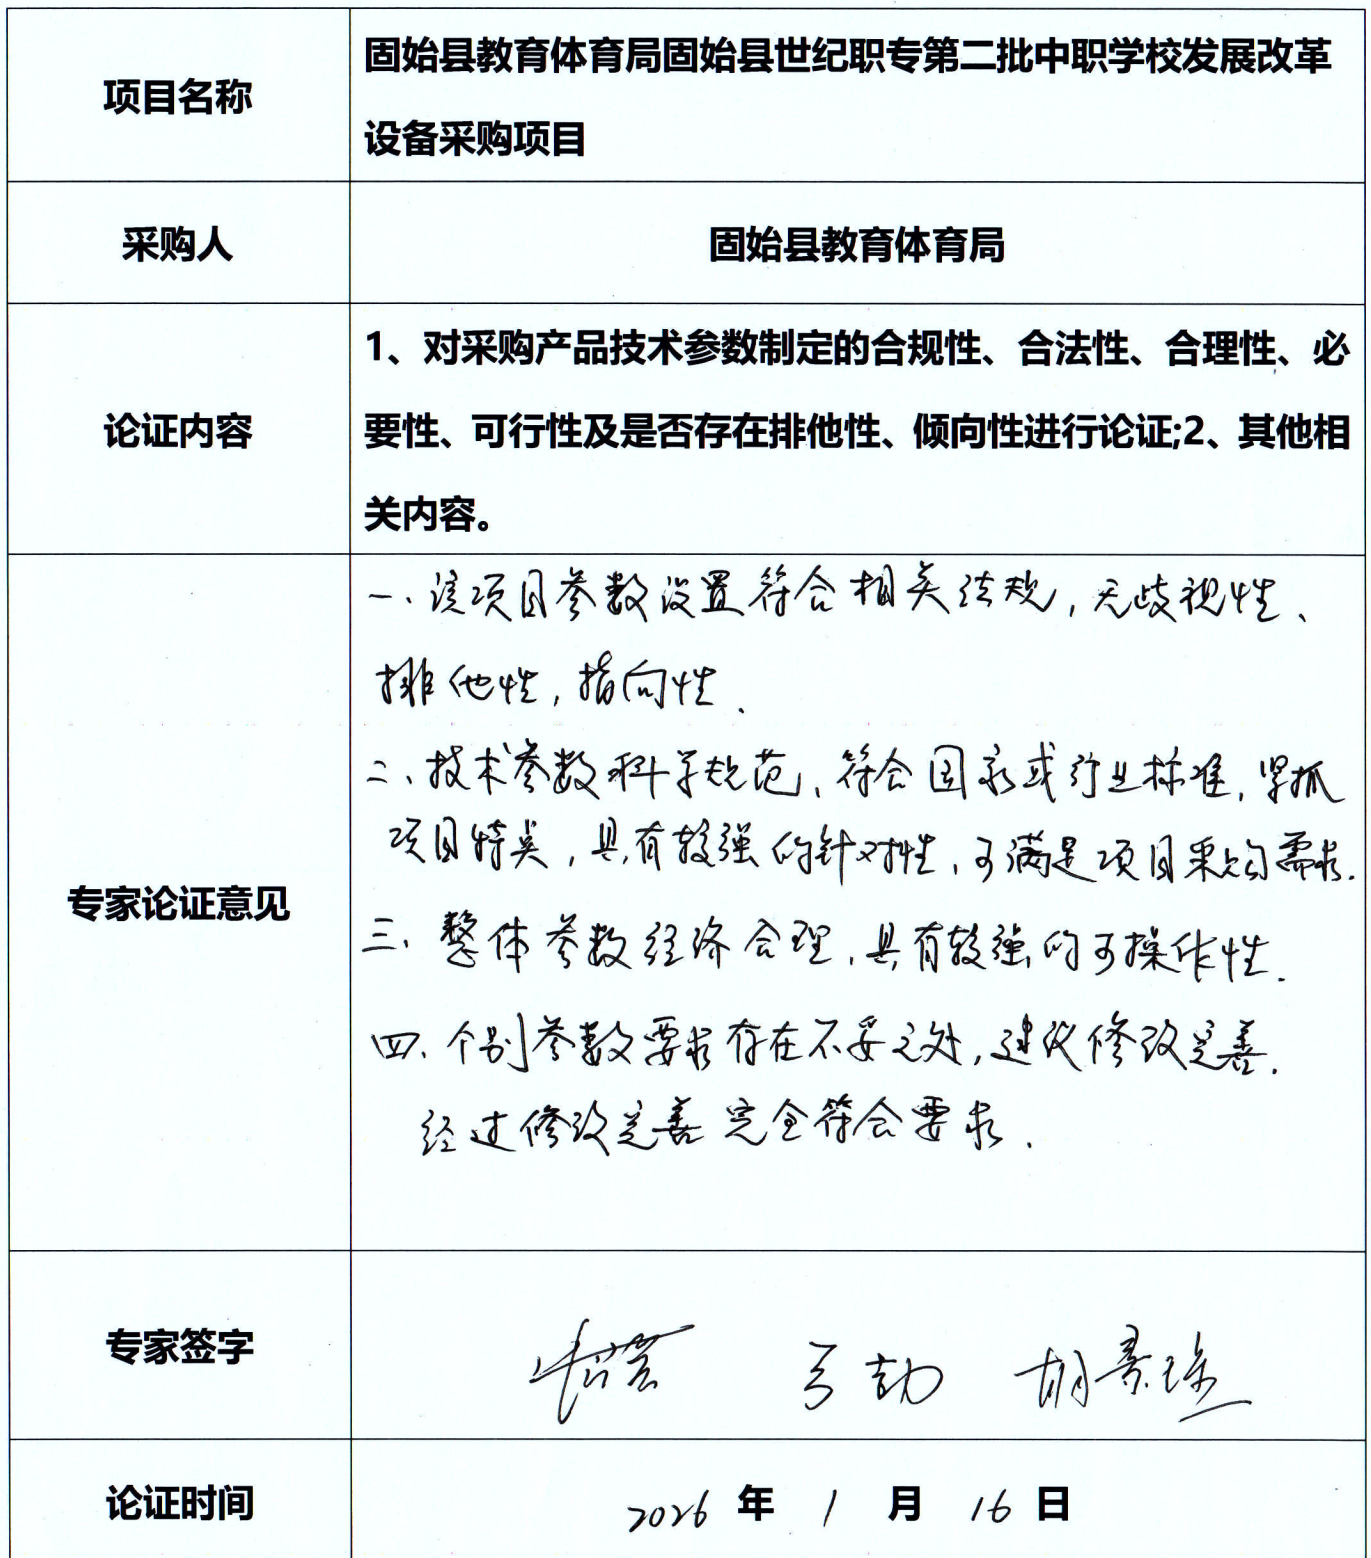 项目名称
固始县教育体育局固始县世纪职专第二批中职学校发展改革
设备采购项目
采购人
固始县教育体育局
论证内容
1、对采购产品技术参数制定的合规性、合法性、合理性、必
要性、可行性及是否存在排他性、倾向性进行论证;2、其他相
关内容。
专家论证意见
一、该项目参数设置符合相关法规,无歧视性、
排他性,指向性.
二、技术参数科学规范,符合国家或行业标准,紧抓
项目特点,具有较强的针对性,可满足项目采购需求.
三、整体参数经济合理,具有较强的可操作性.
四、个别参数要求存在不妥之处,建议修改完善.
经过修改完善完全符合要求.
专家签字
论证时间
2026 年 1 月 16 日